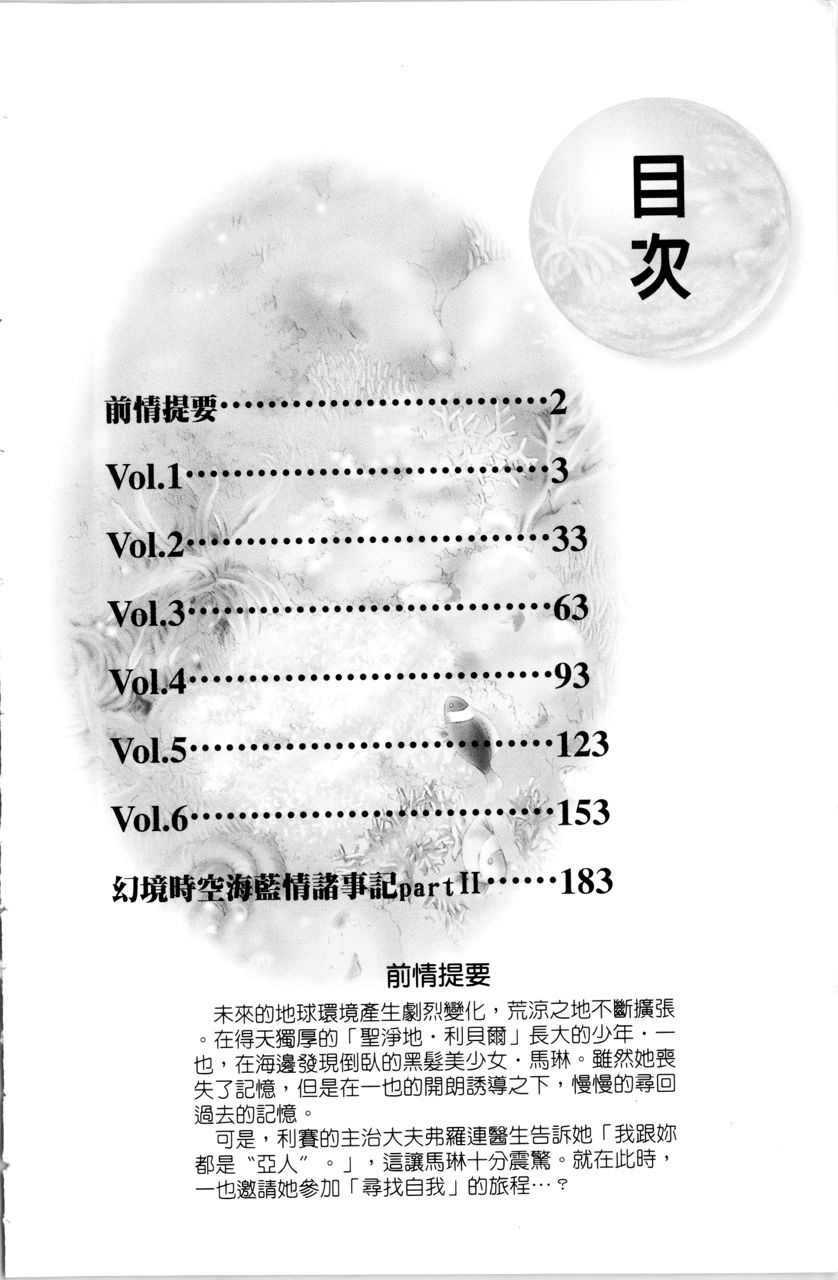 目次
前情提要……………………2
Vol.1……………………3
Vol.2……………………33
Vol.3……………………63
Vol.4……………………93
Vol.5……………………123
Vol.6……………………153
幻境時空海藍情諸事記partⅡ……183
前情提要
未來的地球環境產生劇烈變化，荒涼之地不斷擴張
。在得天獨厚的「聖淨地．利貝爾」長大的少年．一
也，在海邊發現倒臥的黑髮美少女．馬琳。雖然她喪
失了記憶，但是在一也的開朗誘導之下，慢慢的尋回
過去的記憶。
可是，利賽的主治大夫弗羅連醫生告訴她「我跟妳
都是〝亞人〞。」，這讓馬琳十分震驚。就在此時，
一也邀請她參加「尋找自我」的旅程…？